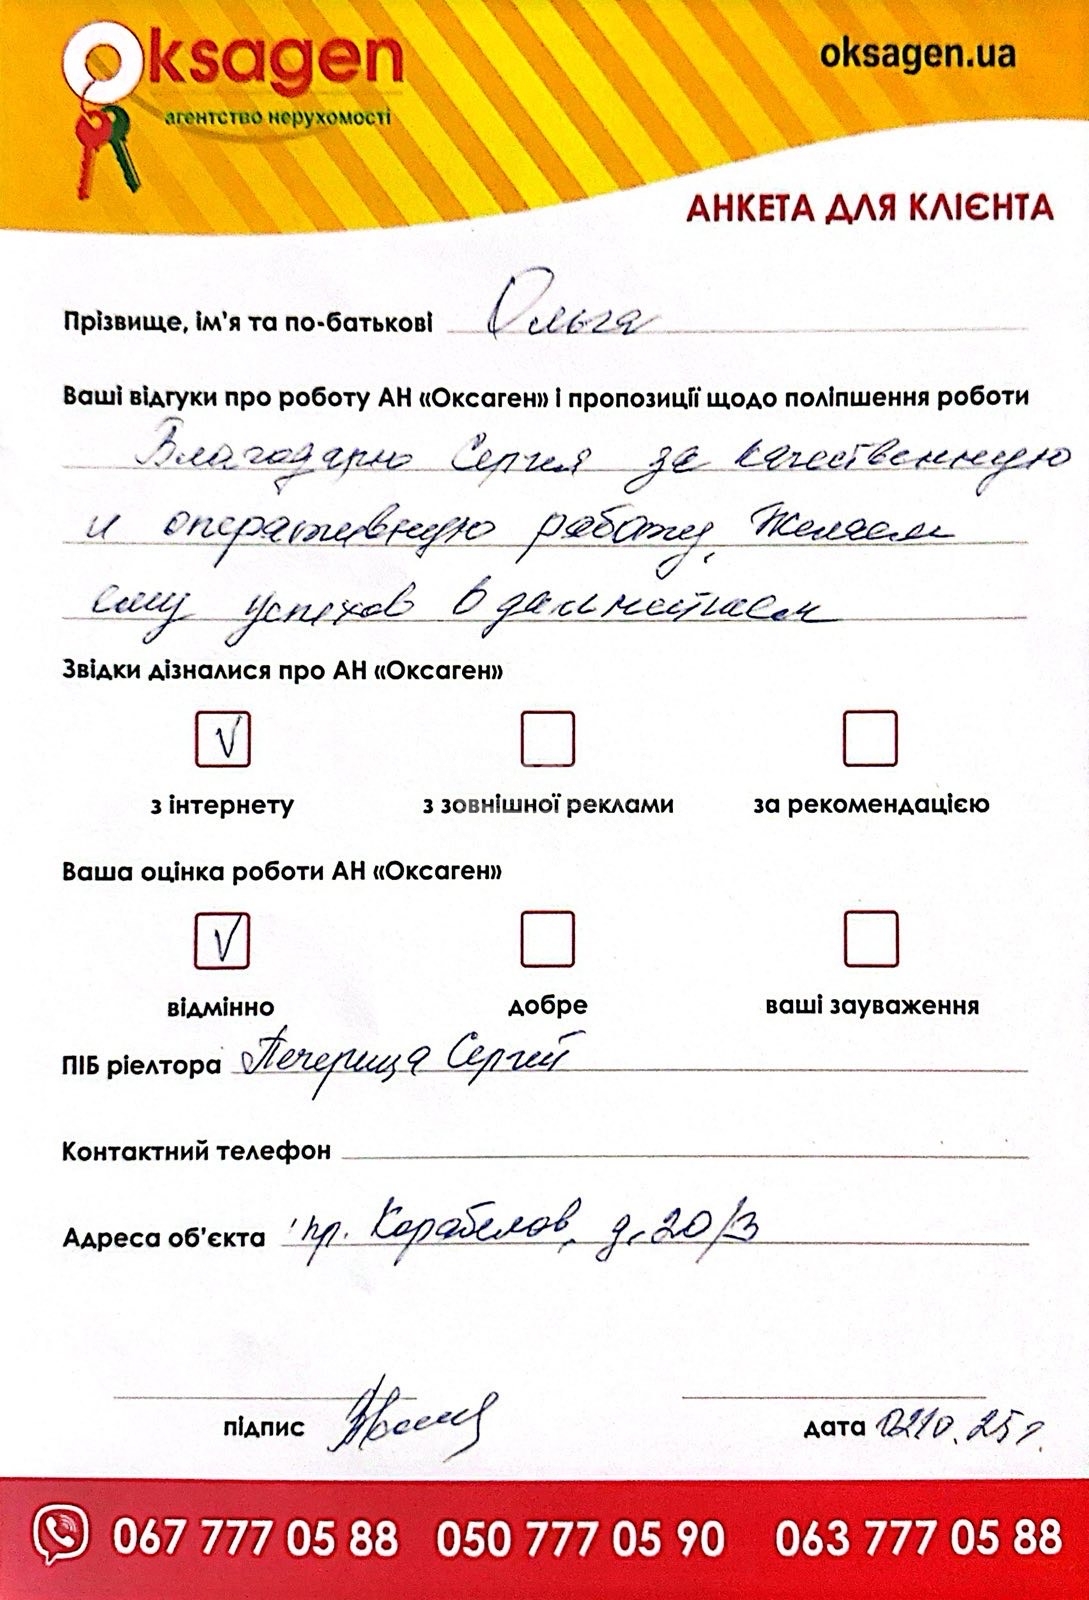 Oksagen
агентство нерухомості
oksagen.ua
АНКЕТА ДЛЯ КЛІЄНТА
Прізвище, ім'я та по-батькові Ольга
Ваші відгуки про роботу АН «Оксаген» і пропозиції щодо поліпшення роботи
Благодарю Сергея за качественную
и оперативную работу. Желаем
ему успехов в дальнейшем
Звідки дізналися про АН «Оксаген»
з інтернету з зовнішної реклами за рекомендацією
Ваша оцінка роботи АН «Оксаген»
відмінно добре ваші зауваження
ПІБ ріелтора Печерица Сергей
Контактний телефон
Адреса об'єкта пр. Корабелов, д. 20/3
підпис дата 02.10.25г.
067 777 05 88 050 777 05 90 063 777 05 88